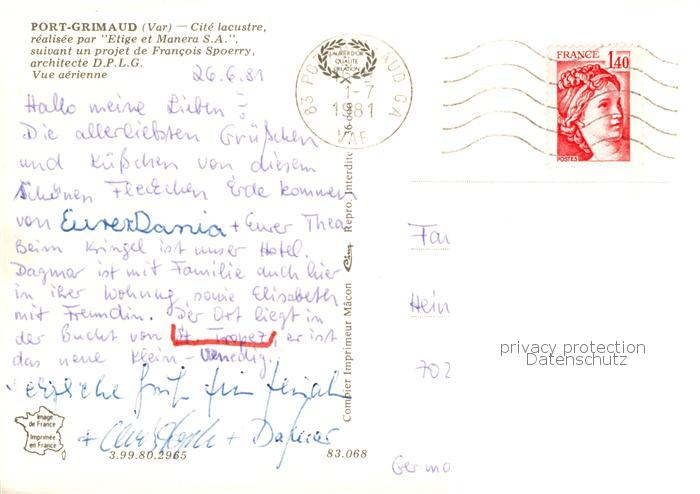 PORT-GRIMAUD (Var) — Cité lacustre,
réalisée par "Etige et Manera S.A.",
suivant un projet de François Spoerry,
architecte D.P.L.G.
Vue aérienne
26.6.81
Hallo meine Lieben
Die allerliebsten Grüßchen
und Küßchen von diesem
schönen Fleckchen Erde kommen
von Eurer Dania + Eurer Thea
Beim Kringel ist unser Hotel.
Dagmar ist mit Familie auch hier
in ihrer Wohnung sowie Elisabeth
mit Freundin. Der Ort liegt in
der Bucht von St. Tropez, er ist
das neue Klein-Venedig.
+ Dagmar
Image
de France
Imprimée
en France
3.99.80.2965
83.068
Combier Imprimeur Mâcon Cim Repro. Interdite
83 PO AUD GA
1-7
1981
VAR
FRANCE
1,40
POSTES
Fam
Hein
702
Germa
privacy protection
Datenschutz